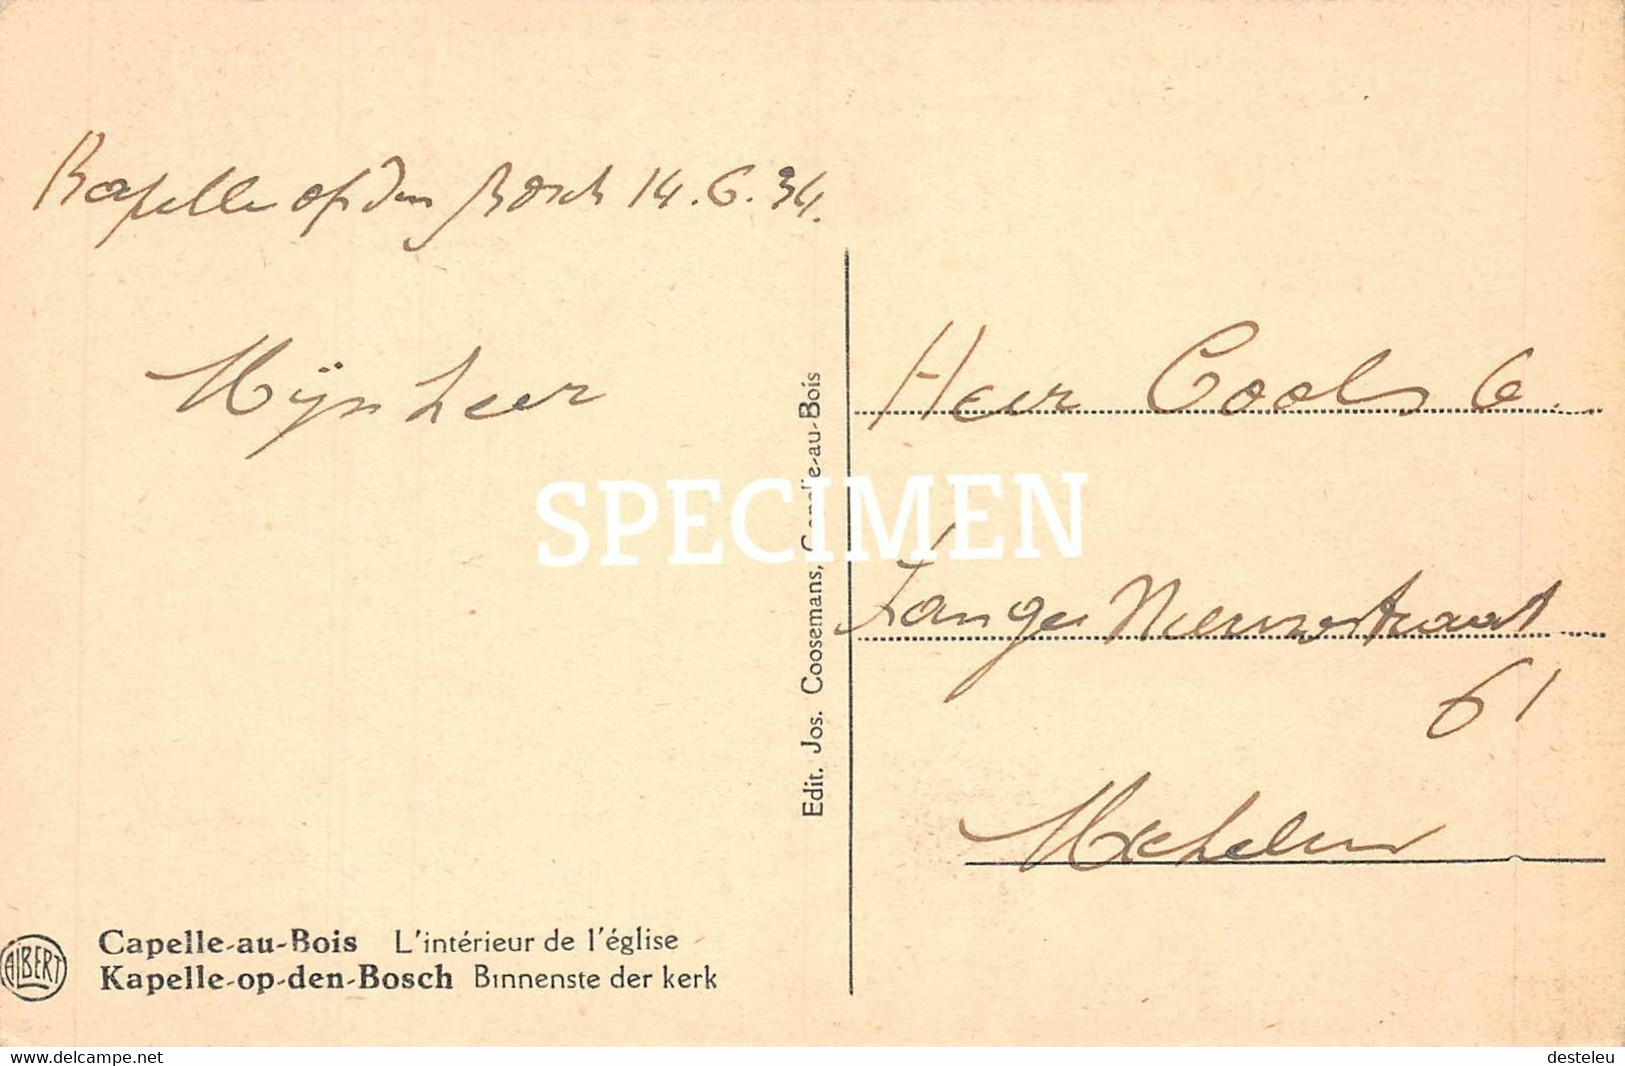 Kapelle op den Bosch 14.6.34.
Mijnheer
Heer Cools
Lange Nieuwstraat
61
Mechelen
SPECIMEN
Edit. Jos. Coosemans, Capelle-au-Bois
Capelle-au-Bois L'intérieur de l'église
Kapelle-op-den-Bosch Binnenste der kerk
ALBERT
www.delcampe.net
desteleu